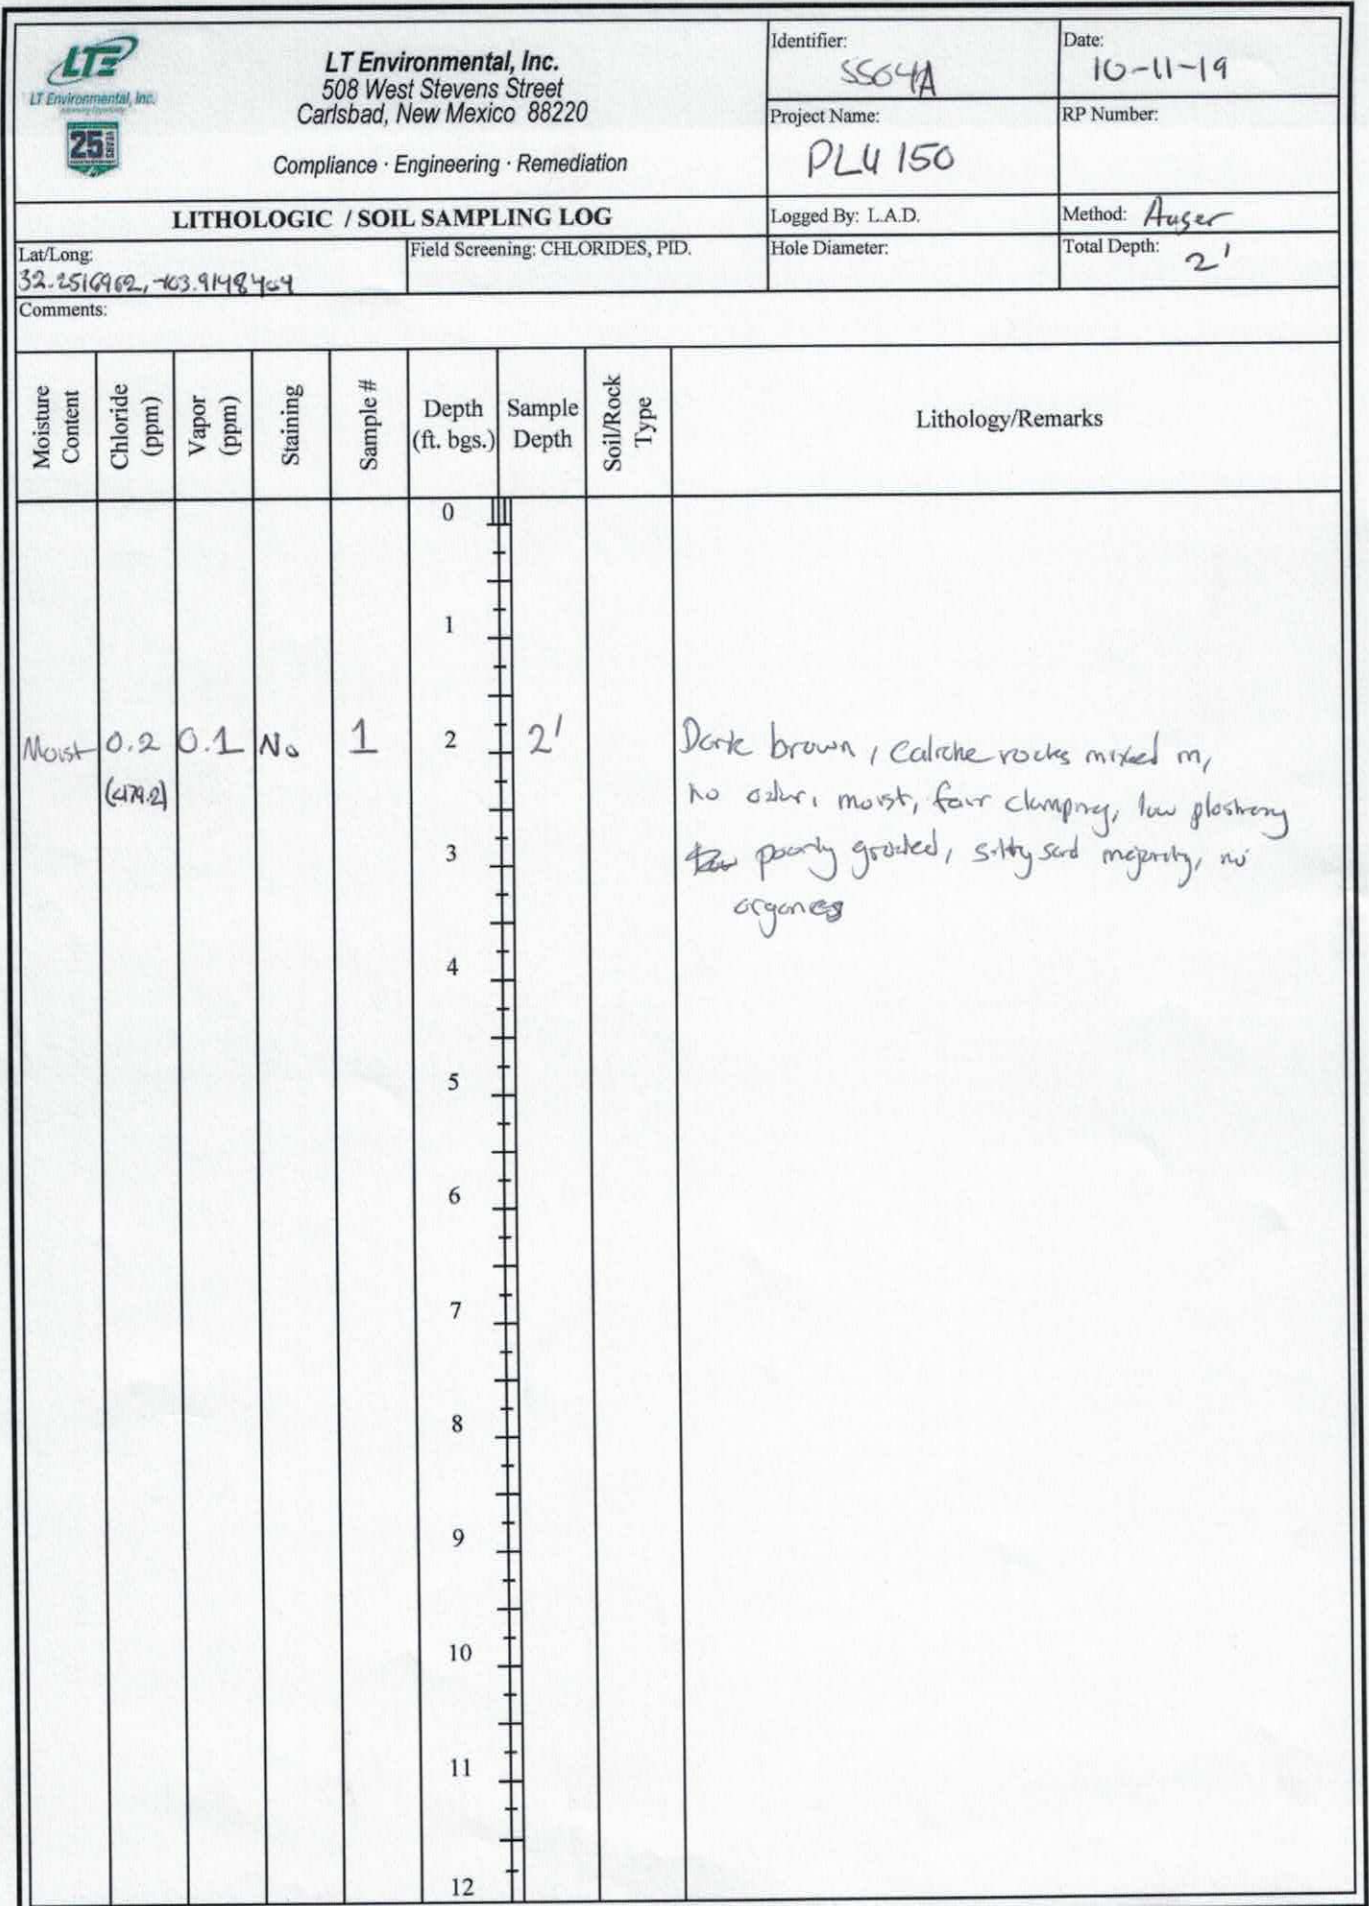 LTE
LT Environmental, Inc.
25 YEARS
LT Environmental, Inc.
508 West Stevens Street
Carlsbad, New Mexico 88220
Compliance · Engineering · Remediation
Identifier:
SS04A
Date:
10-11-19
Project Name:
PLU 150
RP Number:
LITHOLOGIC / SOIL SAMPLING LOG
Logged By: L.A.D.
Method: Auger
Lat/Long:
32.2516962, -103.9148404
Field Screening: CHLORIDES, PID.
Hole Diameter:
Total Depth: 2'
Comments:
Moisture Content
Chloride (ppm)
Vapor (ppm)
Staining
Sample #
Depth (ft. bgs.)
Sample Depth
Soil/Rock Type
Lithology/Remarks
0
1
Moist 0.2 0.1 No 1 2 2' Dark brown, caliche rocks mixed in,
(<179.2) no odor, moist, fair clumping, low plasticity
3 poorly graded, silty sand majority, no
organics
4
5
6
7
8
9
10
11
12